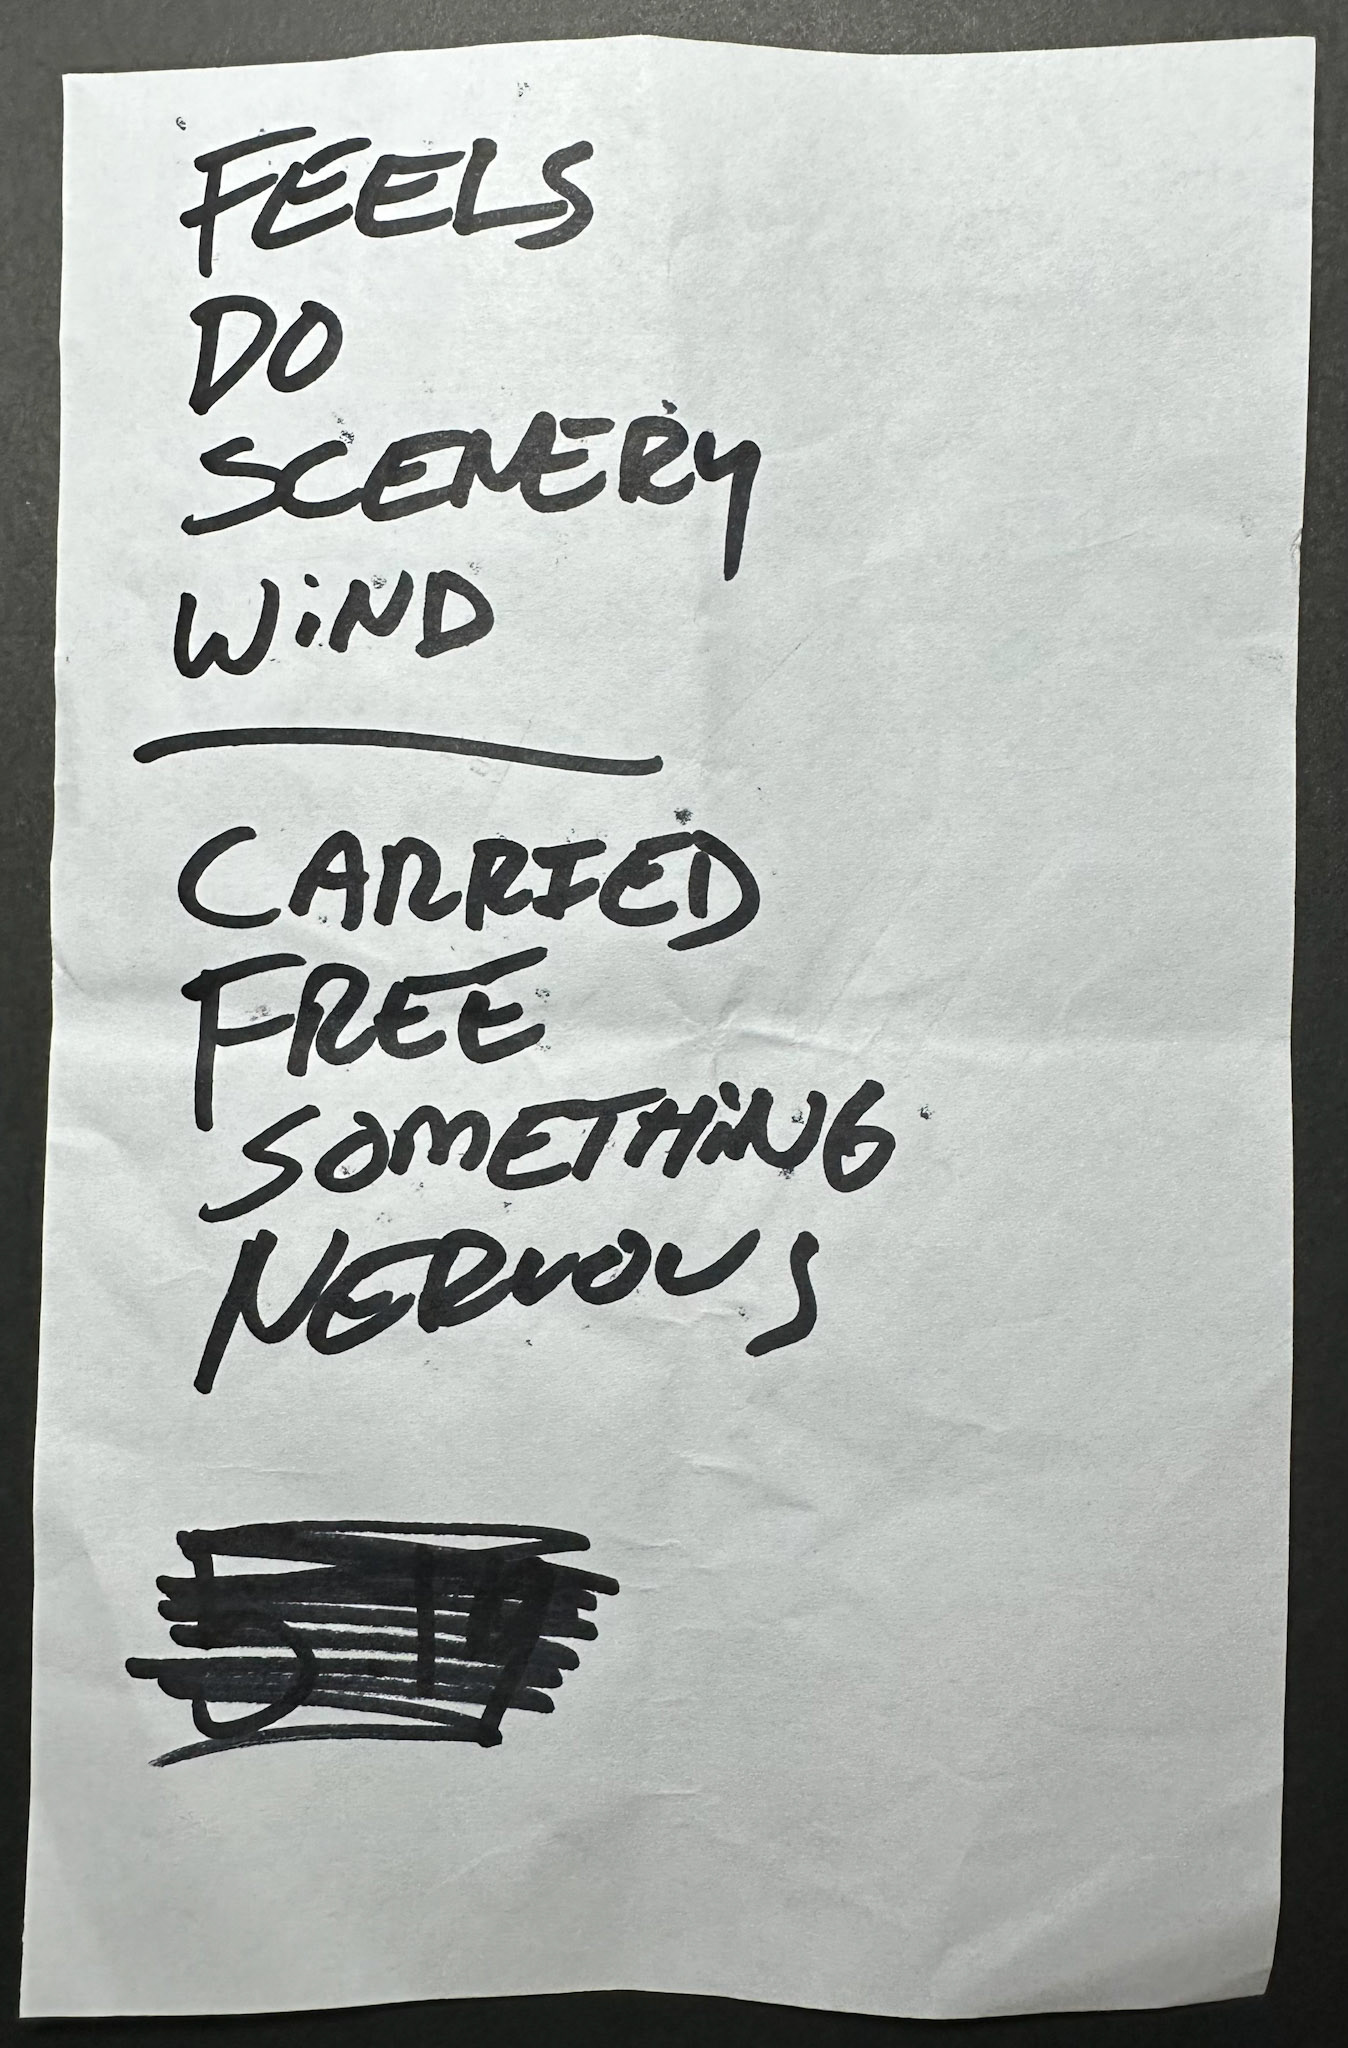 FEELS
DO
SCENERY
WiND
CARRIED
FREE
SOMETHiNG
NERVOUS